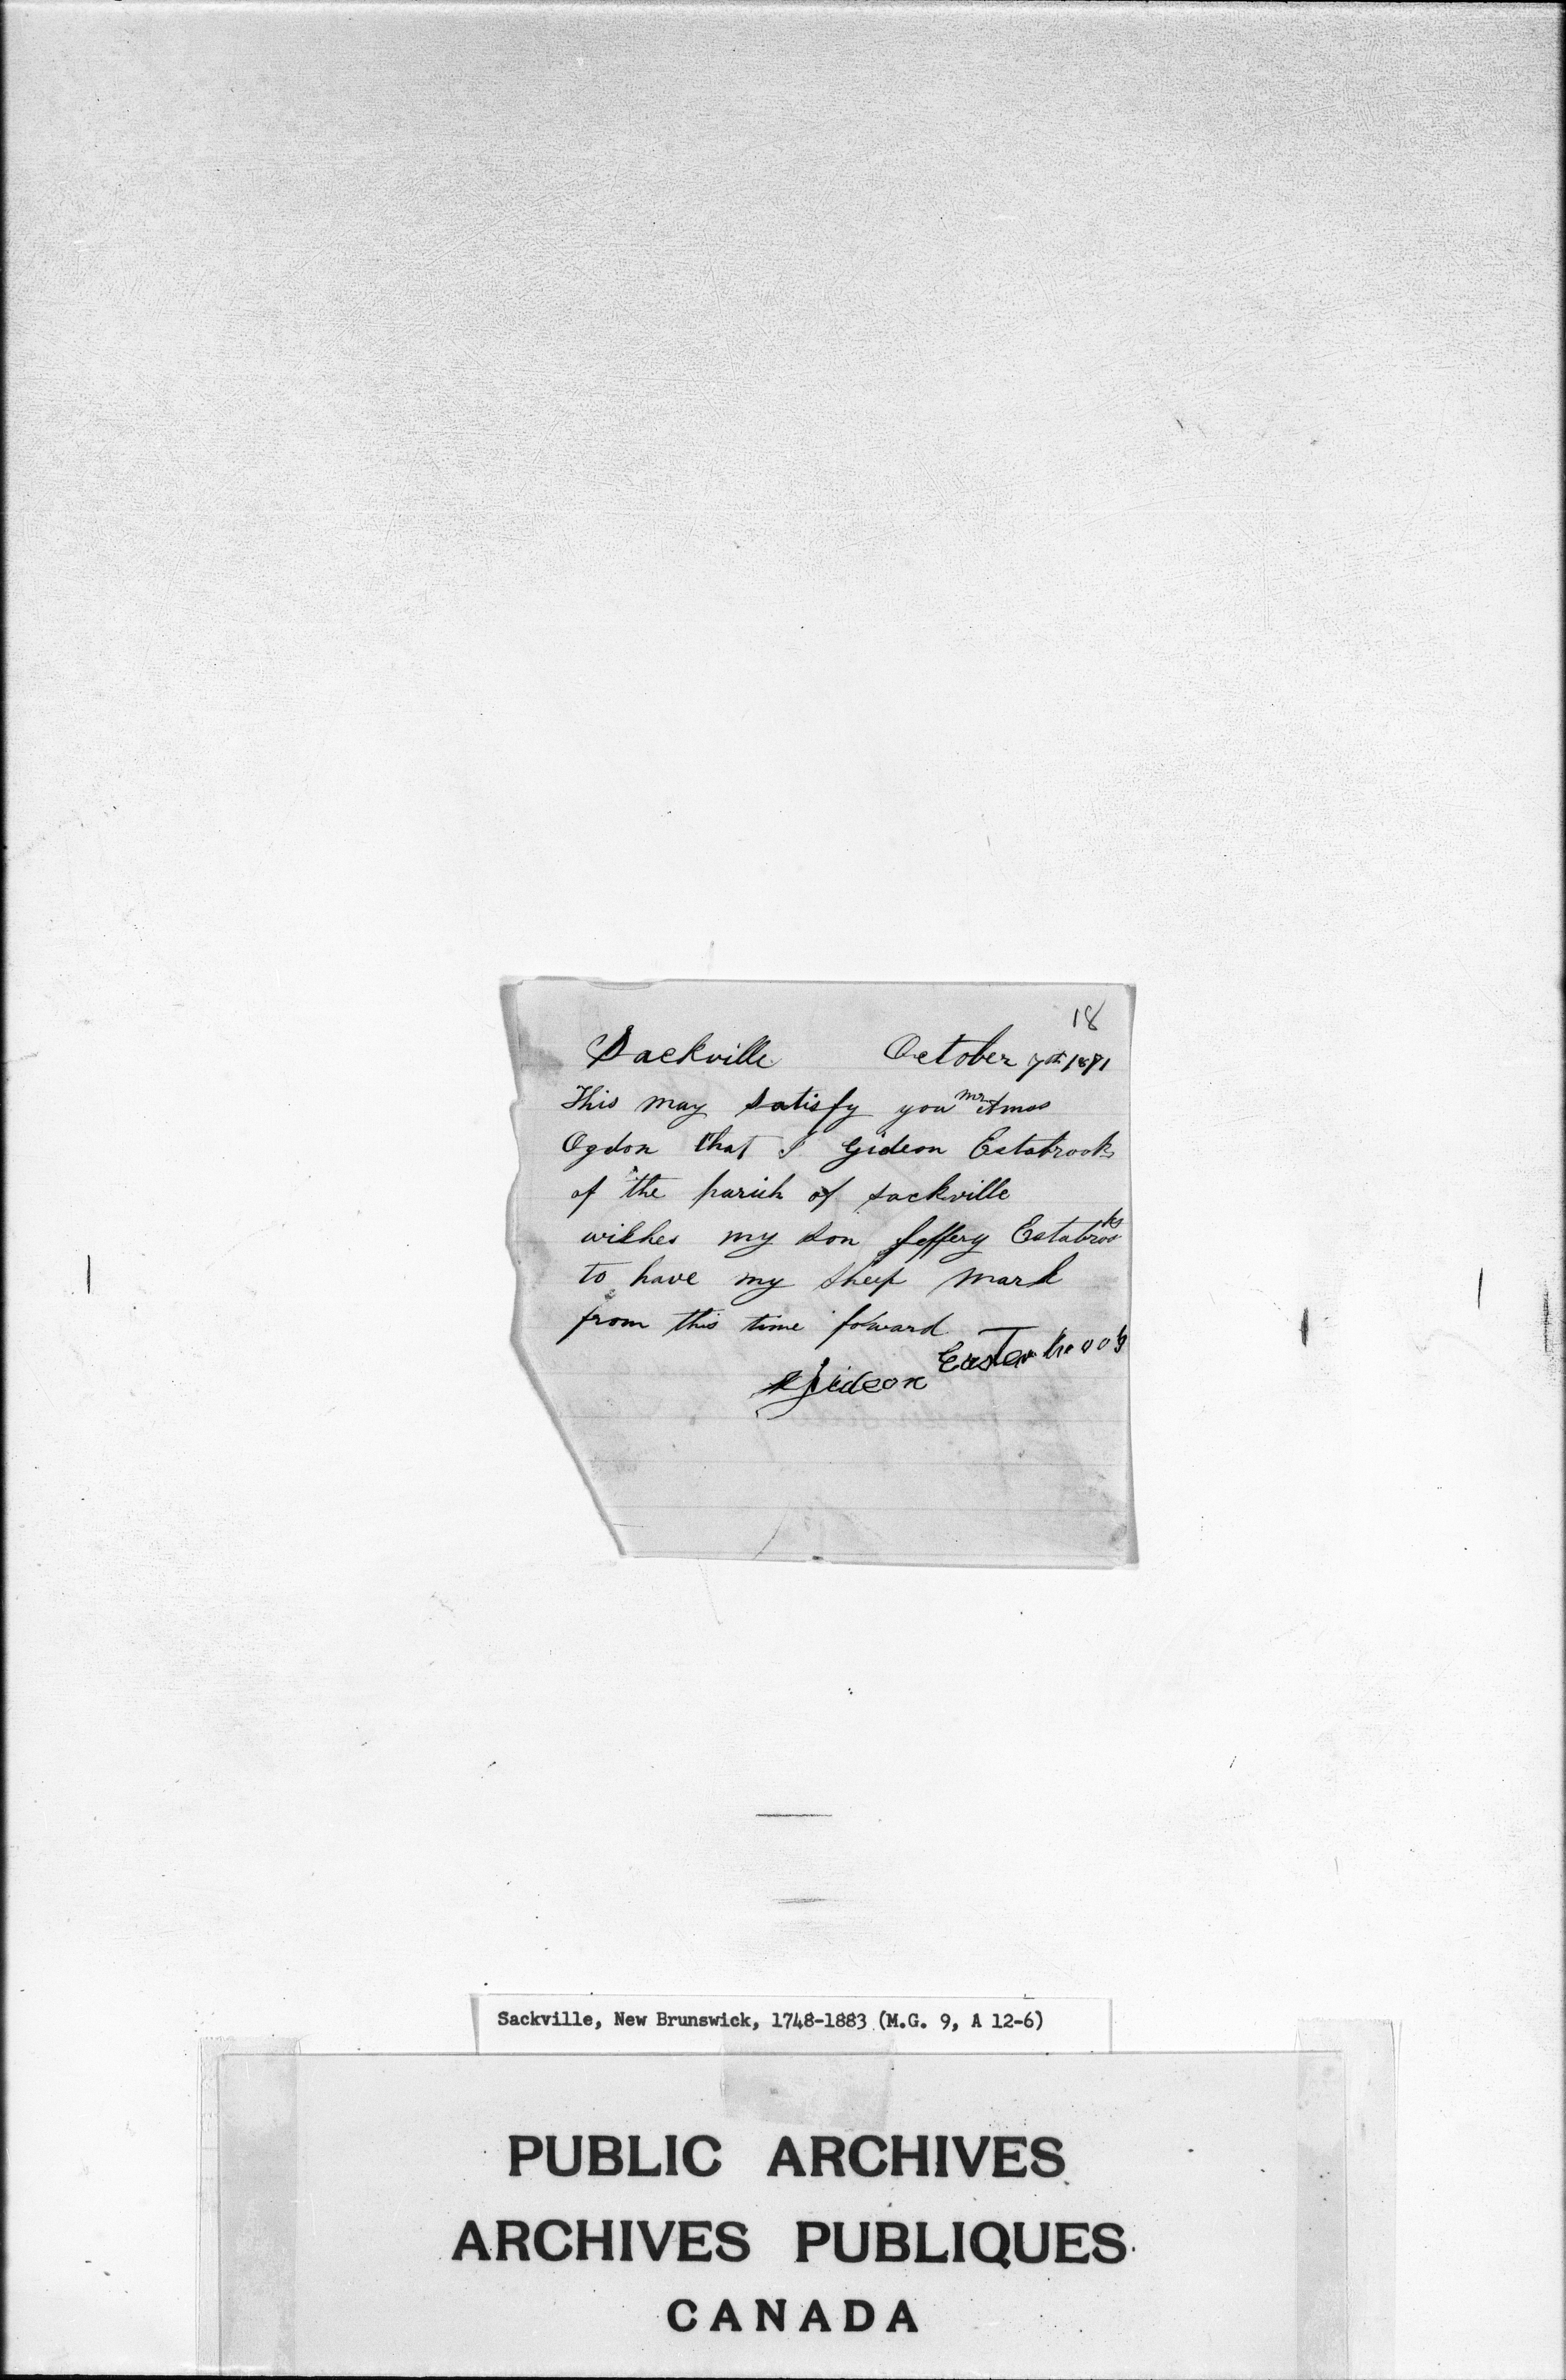 18
Sackville October 7th 1871
This may satisfy you mr Amos
Ogdon that I Gideon Estabrooks
of the parish of sackville
wishes my son Jeffery Estabrooks
to have my sheep mark
from this time foward
Gideon Easterbrooks
Sackville, New Brunswick, 1748-1883 (M.G. 9, A 12-6)
PUBLIC ARCHIVES
ARCHIVES PUBLIQUES
CANADA